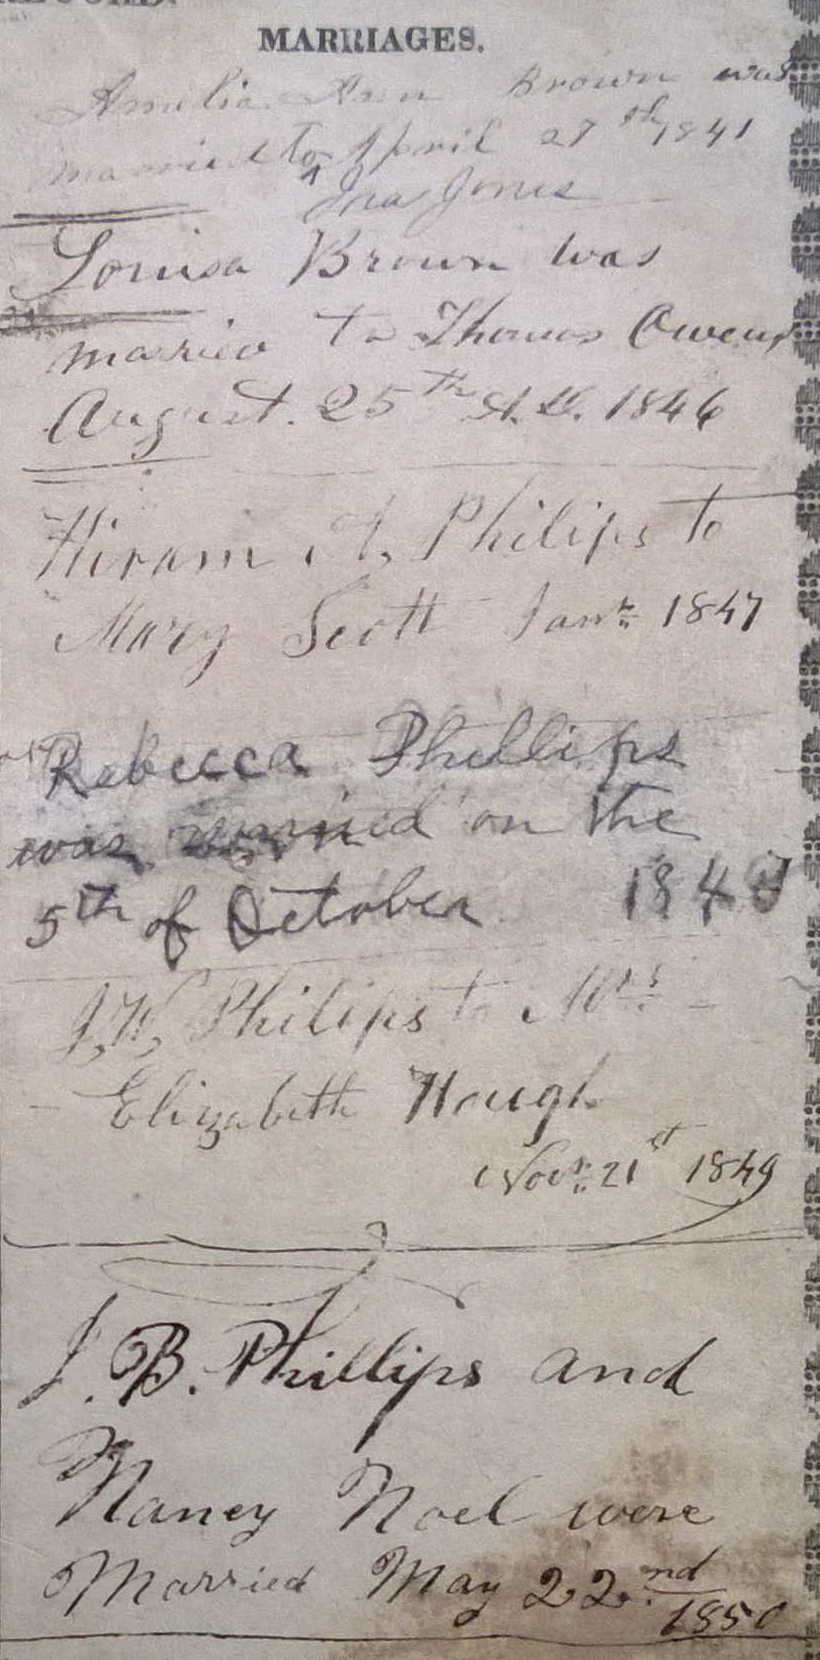 MARRIAGES.
Amelia Ann Brown was
married to April 27th 1841
^ Ira Jones
Louisa Brown was
married to Thomas Owens
August. 25th A.D. 1846
Hiram A, Philips to
Mary Scott Janr 1847
Rebecca Phillips
was married on the
5th of October 184
J,W, Philips to Mrs
Elizabeth Hough
Novr. 21st 1849
J. B. Phillips and
Nancy Noel were
Married May 22nd
1850